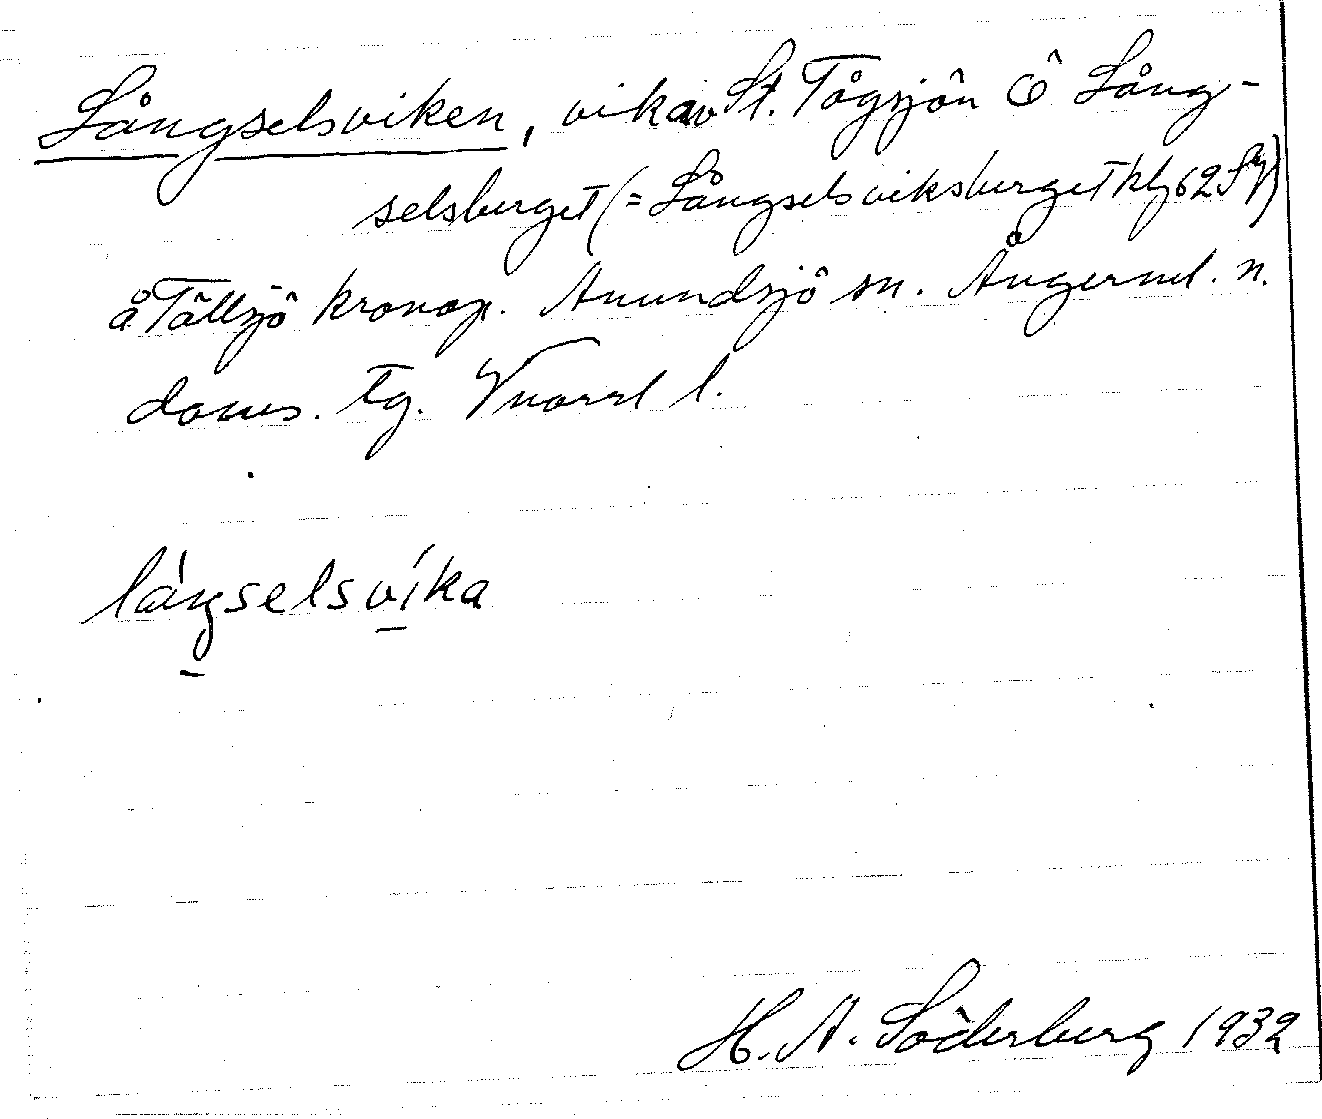 Långselsviken, vik av St. Tågsjön Ö Lång-
selsberget (= Långselsviksberget kbl 62 SV)
å Tällsjö kronop. Anundsjö sn. Ångerml. n.
doms. tg.
långselsvíka
H. A. Söderberg 1932